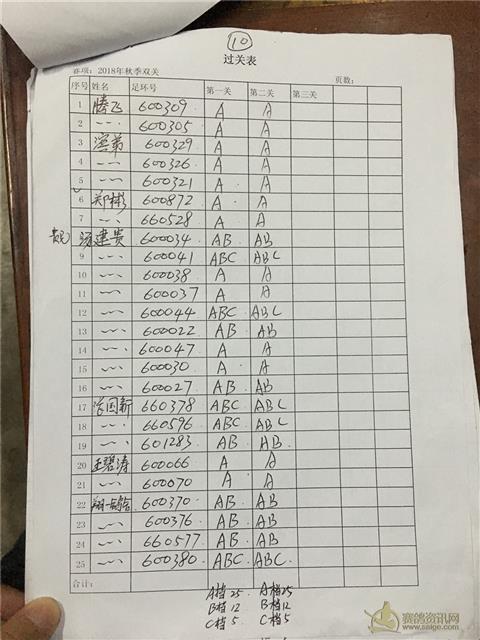 10
过关表
赛项: 2018年秋季双关 页数:
序号 姓名 足环号 第一关 第二关 第三关
1 腾飞 600309 A A
2 〃 600305 A A
3 600329 A A
4 〃 600326 A A
5 〃 600321 A A
6 郑彬 600872 A A
7 〃 660528 A A
汤建贵 600034 AB AB
9 〃 600041 ABC ABC
10 〃 600038 A A
11 〃 600037 A A
12 〃 600044 ABC ABC
13 〃 600022 AB AB
14 〃 600047 A A
15 〃 600030 A A
16 〃 600027 AB AB
17 治国新 660378 ABC ABC
18 〃 660596 ABC ABC
19 〃 601283 AB AB
20 王碧涛 600066 A A
21 〃 600070 A A
22 600370 AB AB
23 〃 600376 AB AB
24 〃 660577 AB AB
25 〃 600380 ABC ABC
合计:
A档25 A档25
B档12 B档12
C档5 C档5
赛鸽资讯网
www.saige.com